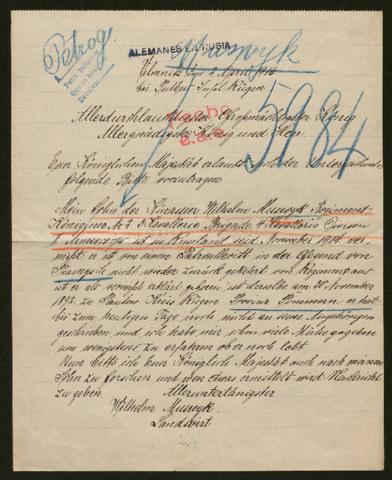 Petrog.
ALEMANES EN RUSIA
Muswyk
April 1916
bei Putbus Insel Rügen
5984
Hecho
Allerdurchlauchtigster Großmächtigster König
Allergnädigster König und Herr.
Euer Königlichen Majestät erlaubt sich der Unterzeichnete
folgende Bitte vorzutragen
Mein Sohn der Kürassier Wilhelm Muswyk Regiment
Königin No 2 Kavallerie Brigade 4 Kavallerie Division
ist in Russland seit November 1914 ver
mißt er ist von einem Patrouillenritt in der Gegend von
nicht wieder zurück gekehrt vom Regiment aus
ist er als vermißt erklärt geboren ist derselbe am 20 November
1892 zu Kreis Rügen Provinz Pommern er hat
bis zum heutigen Tage noch nicht an seine Angehörigen
geschrieben, und ich habe mir schon viel Mühe gegeben
um wenigstens zu erfahren ob er noch lebt
Nun bitte ich Euer Königliche Majestät auch nach meinem
Sohn zu forschen und wen etwas ermittelt wird Nachricht
zu geben.
Alleruntertänigster
Wilhelm Muswyk
Landwirt